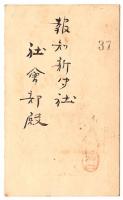 報知新聞社
社會部殿
37